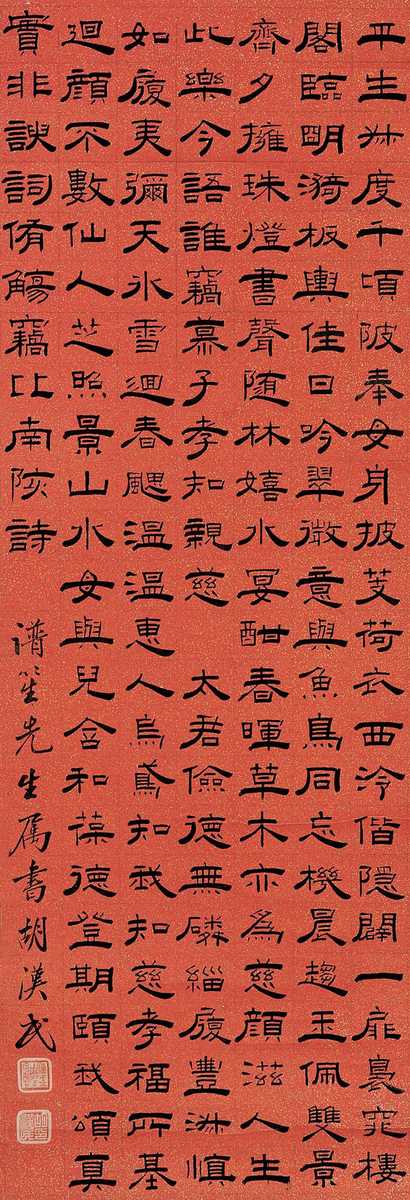 平生叔度千頃陂奉母身披芰荷衣西泠偕隱闢一扉樓
閣臨明漪板輿佳日吟翠微意與魚鳥同忘機晨趨玉佩雙景
齊夕擁珠燈書聲隨林嬉水宴酣春暉草木亦為慈顏滋人生
此樂今語誰竊慕子孝知親慈 太君儉德無磷緇履豐淑慎
如履夷彌天冰雪迴春颸溫溫惠人烏鳶知我知慈孝福所基
迴顏不數仙人芝照景山水母與兒含和葆德登期頤我頌真
實非諛詞侑觴竊比南陔詩
譜笙先生屬書胡漢民